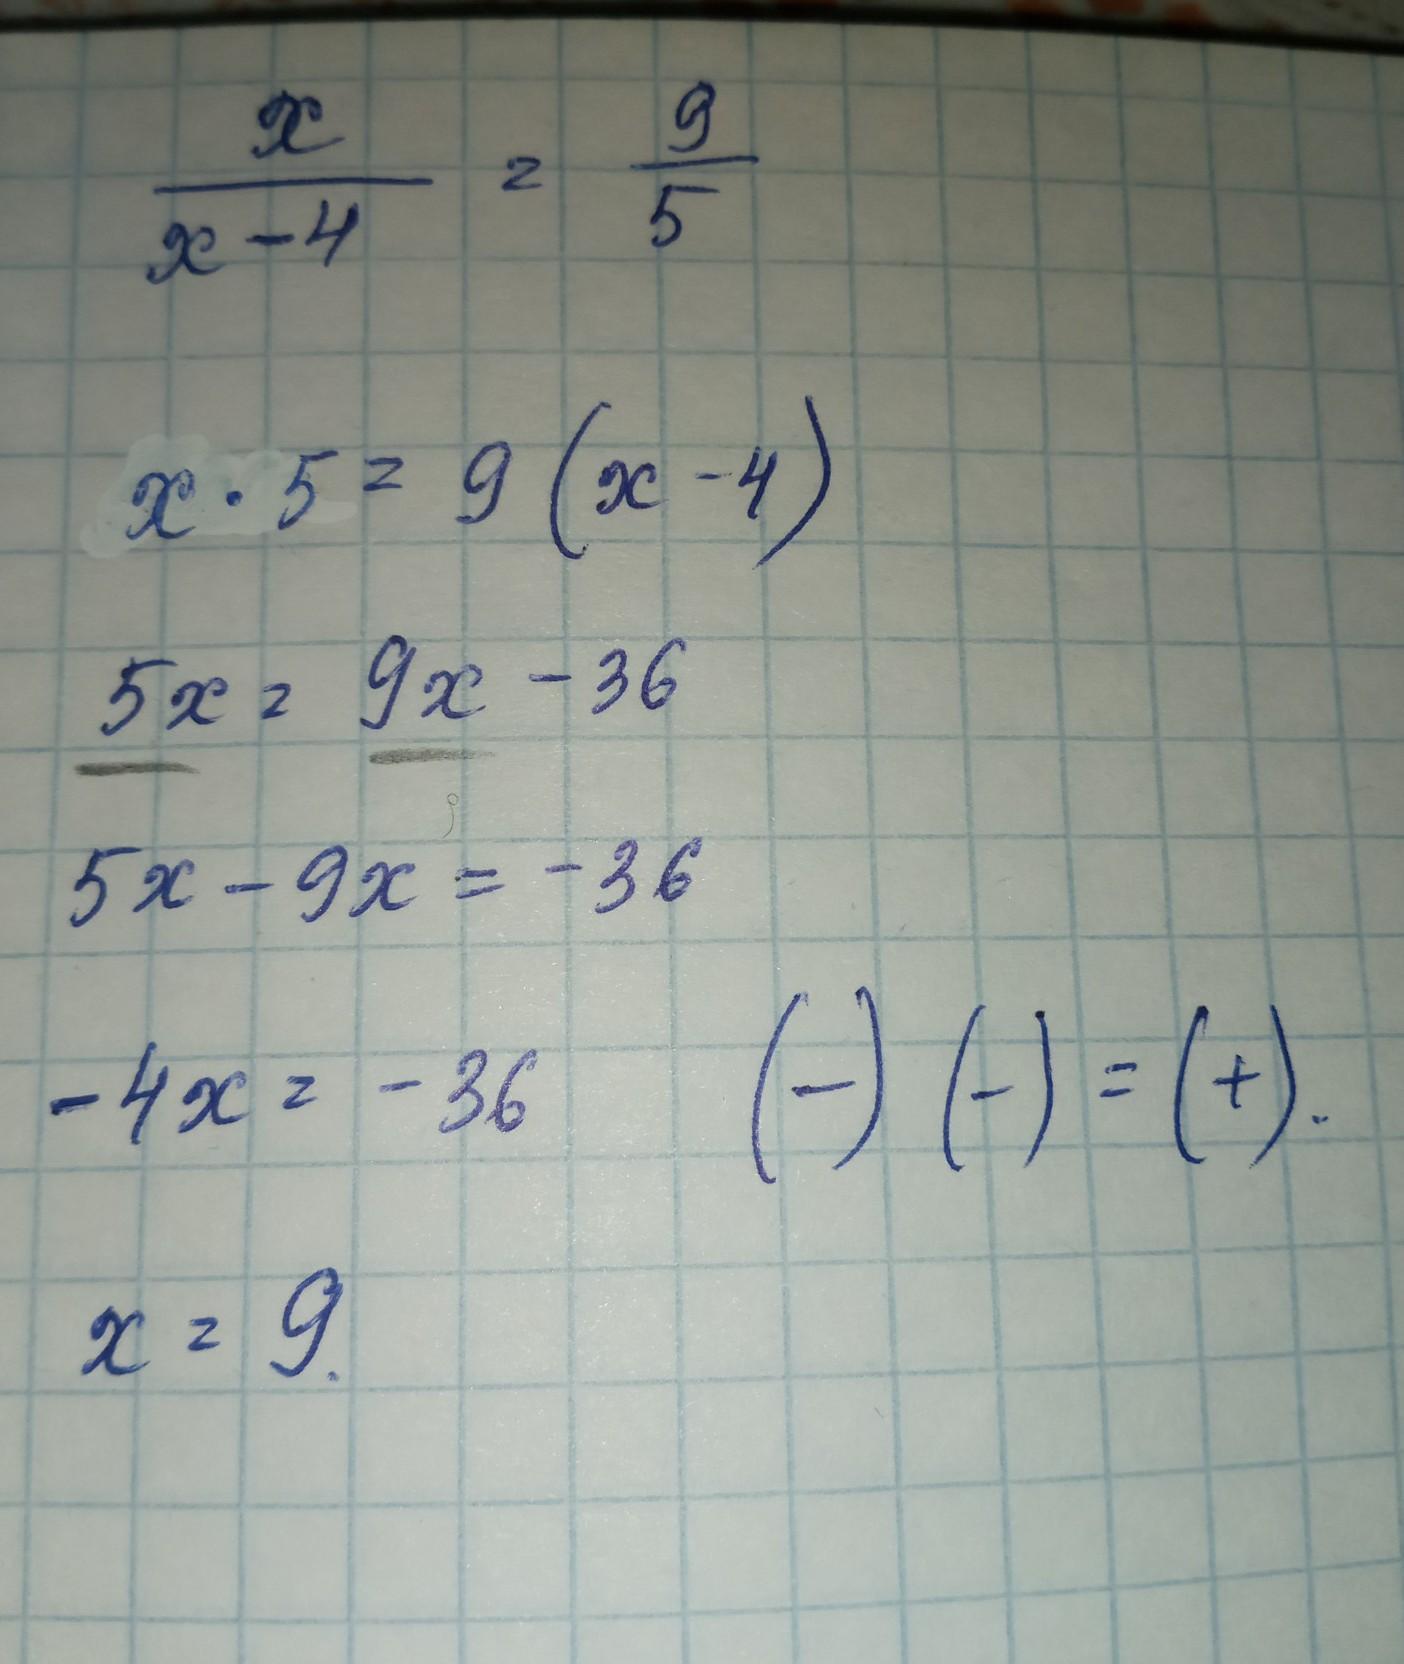 x/(x-4) = 9/5
x · 5 = 9 (x - 4)
5x = 9x - 36
5x - 9x = - 36
- 4x = - 36 (-) (-) = (+).
x = 9.